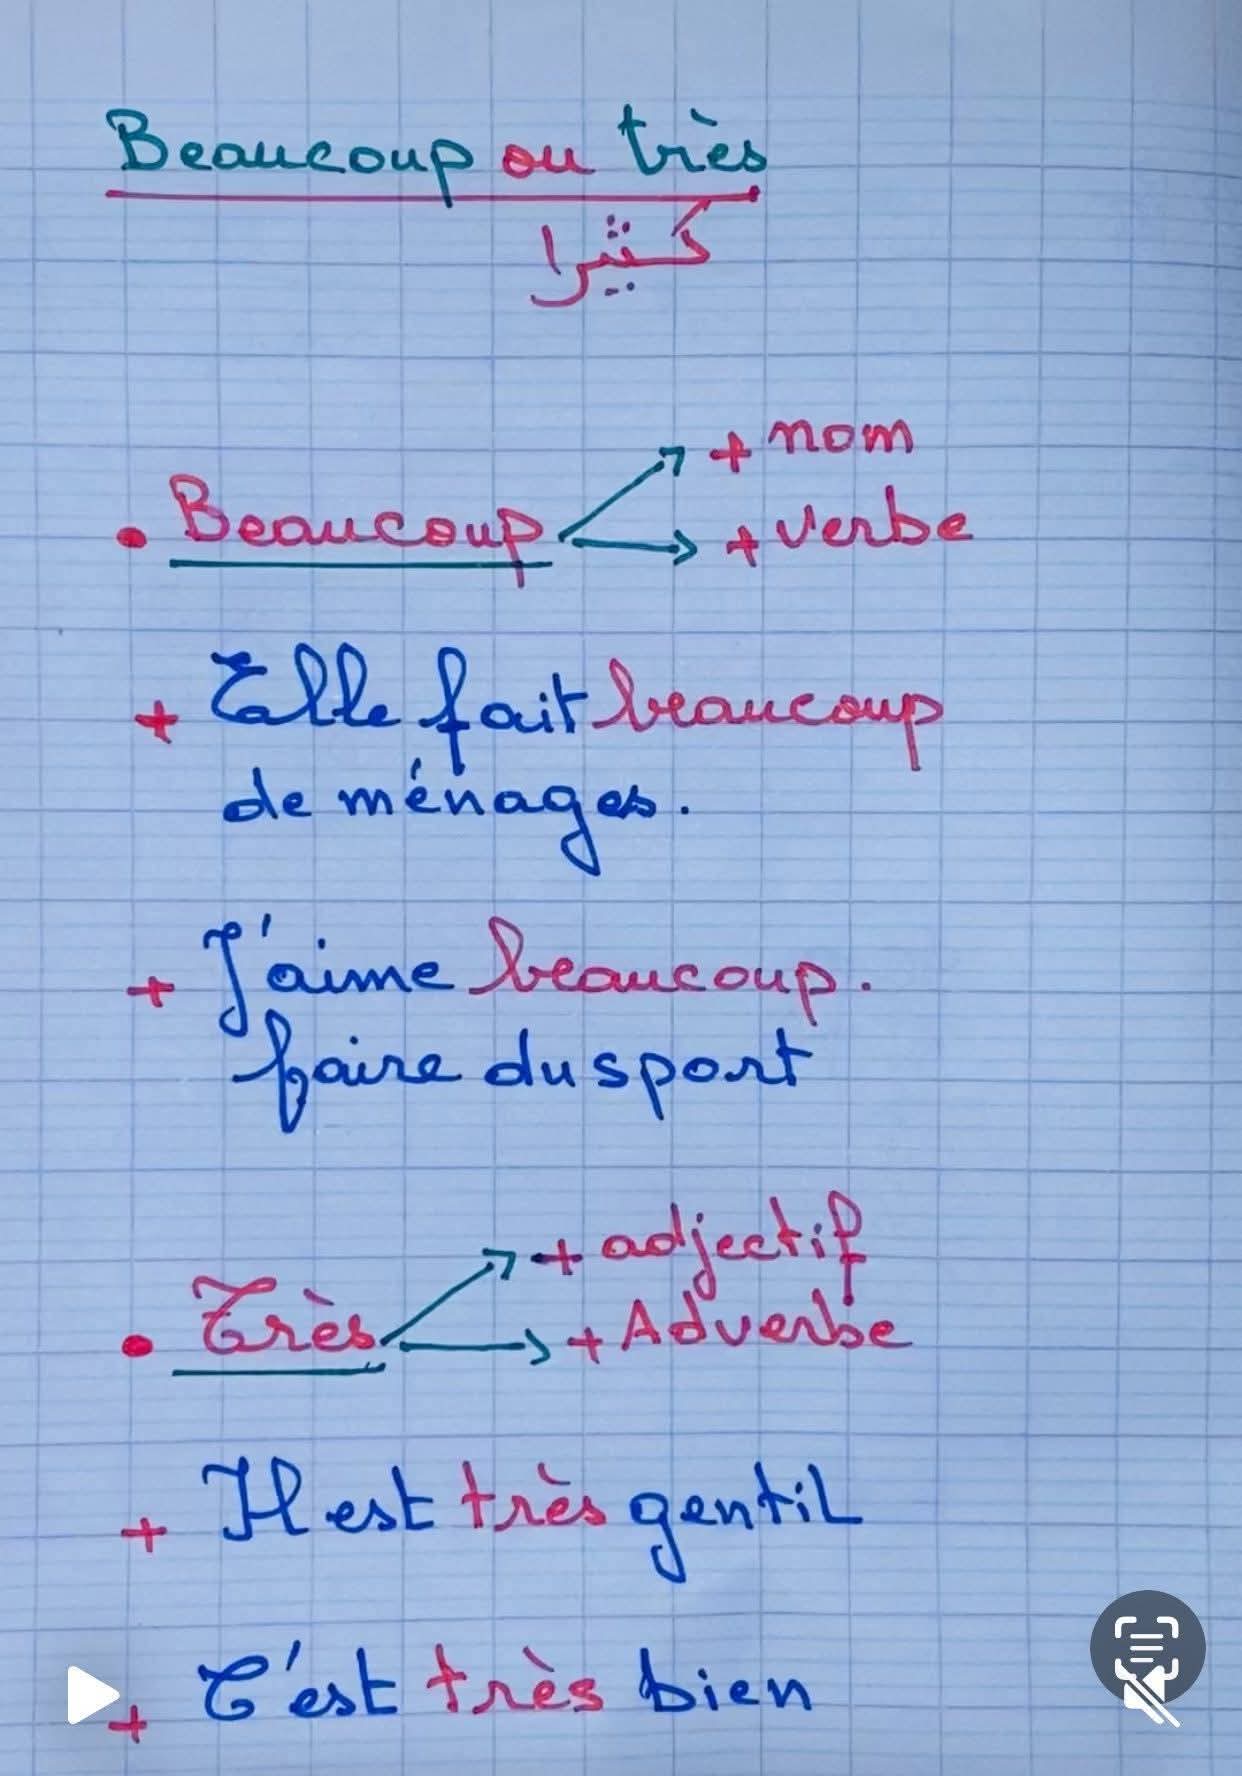 Beaucoup ou très
كثيرا
+ nom
• Beaucoup
+ verbe
+ Elle fait beaucoup
de ménages.
+ J'aime beaucoup.
faire du sport
+ adjectif
• Très
+ Adverbe
+ Il est très gentil
+ C'est très bien